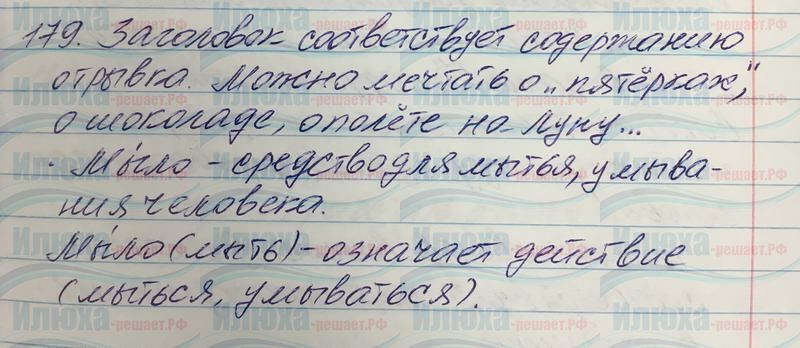 179. Заголовок соответствует содержанию
отрывка. Можно мечтать о „пятёрках,”
о шоколаде, о полёте на Луну...
· Мы́ло - средство для мытья, умыва-
ния человека.
Мы́ло (мыть) - означает действие
(мыться, умываться).